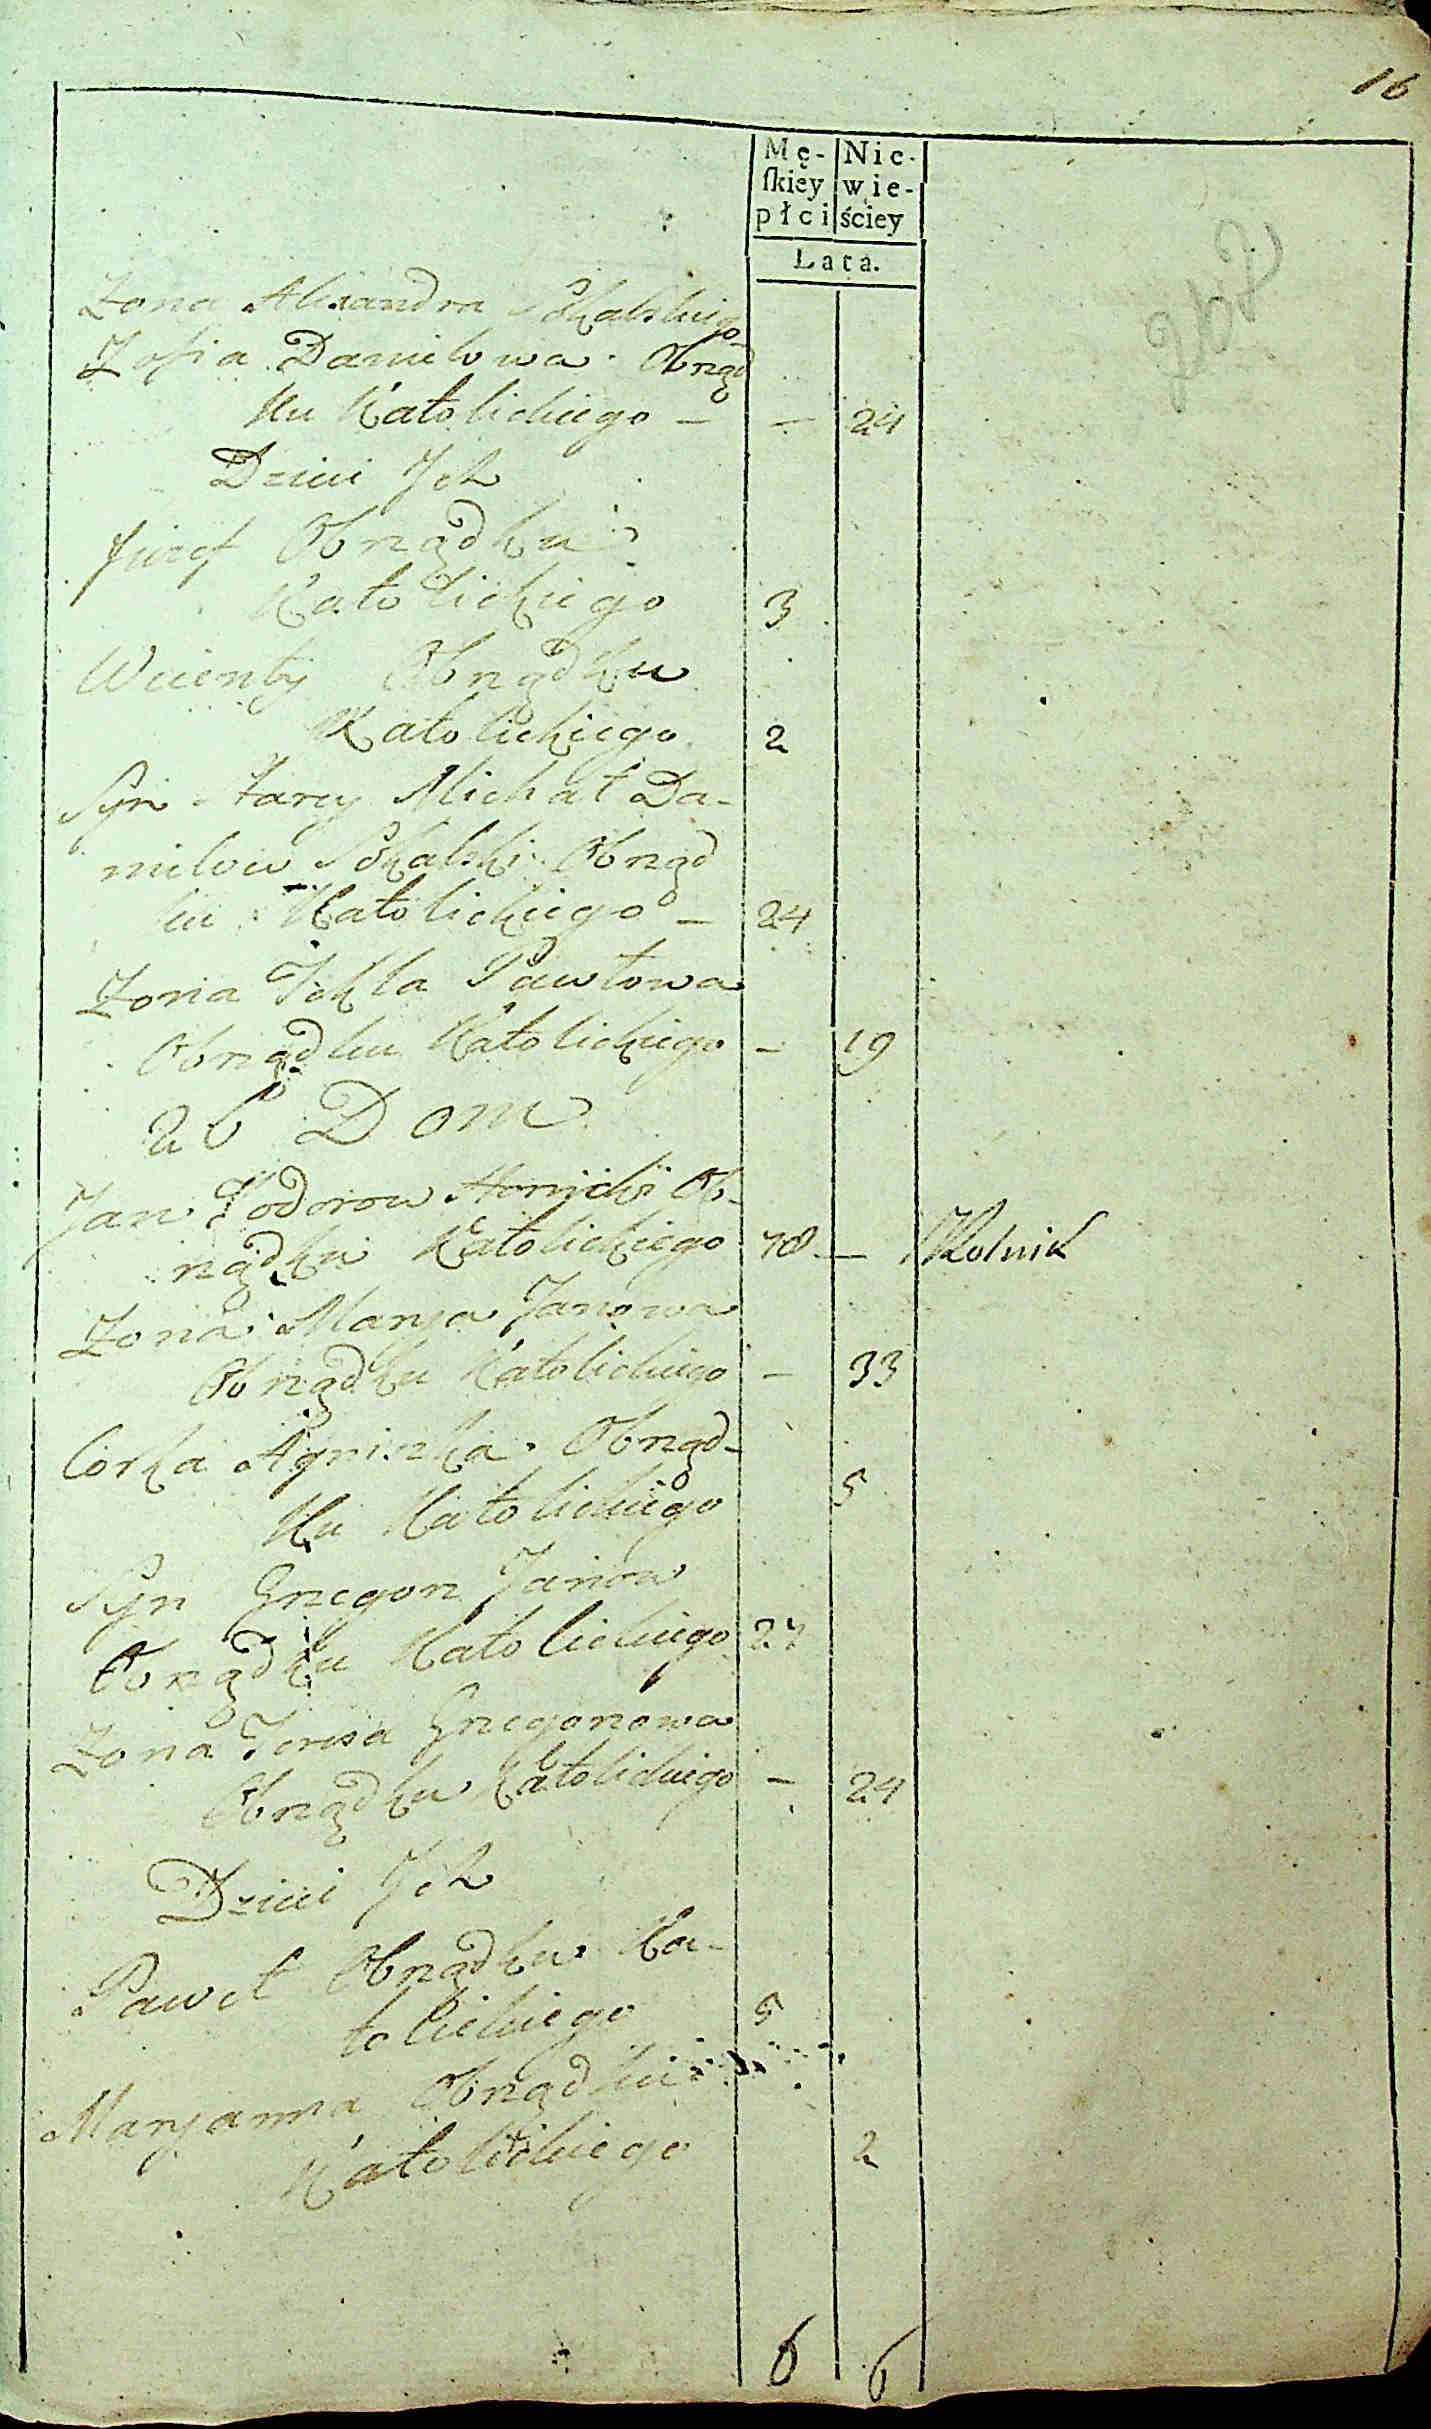 16
Mę- Nie-
ſkiey wie-
płci ściey
Lata.
Żona Alexandra Sokalskiego
Zofia Danilowa Obrząd
ku Katolickiego – – 24
Dzieci Jch
Juzef Obrządku
Katolickiego 3
Wicenty Obrządku
Katolickiego 2
Syn Starży Michał Da-
nilow Sokalski Obrząd
ku Katolickiego – 24
Żona Tekla Pawłowa
Obrządku Katolickiego – 19
26 Dom
Jan Fodorow Ob-
rządku Katolickiego 78 – Rolnik
Żona Marya Janowa
Obrządku Katolickiego – 33
Corka Agniszka Obrząd-
ku Katolickiego 5
Syn Gregorz Janow
Obrządku Katolickiego 27
Żona Teresa Gregorzowa
Obrządku Katolickiego – 24
Dzieci Jch
Paweł Obrządku Ka-
tolickiego 5
Maryanna Obrządku
Katolickiego 2
6 6